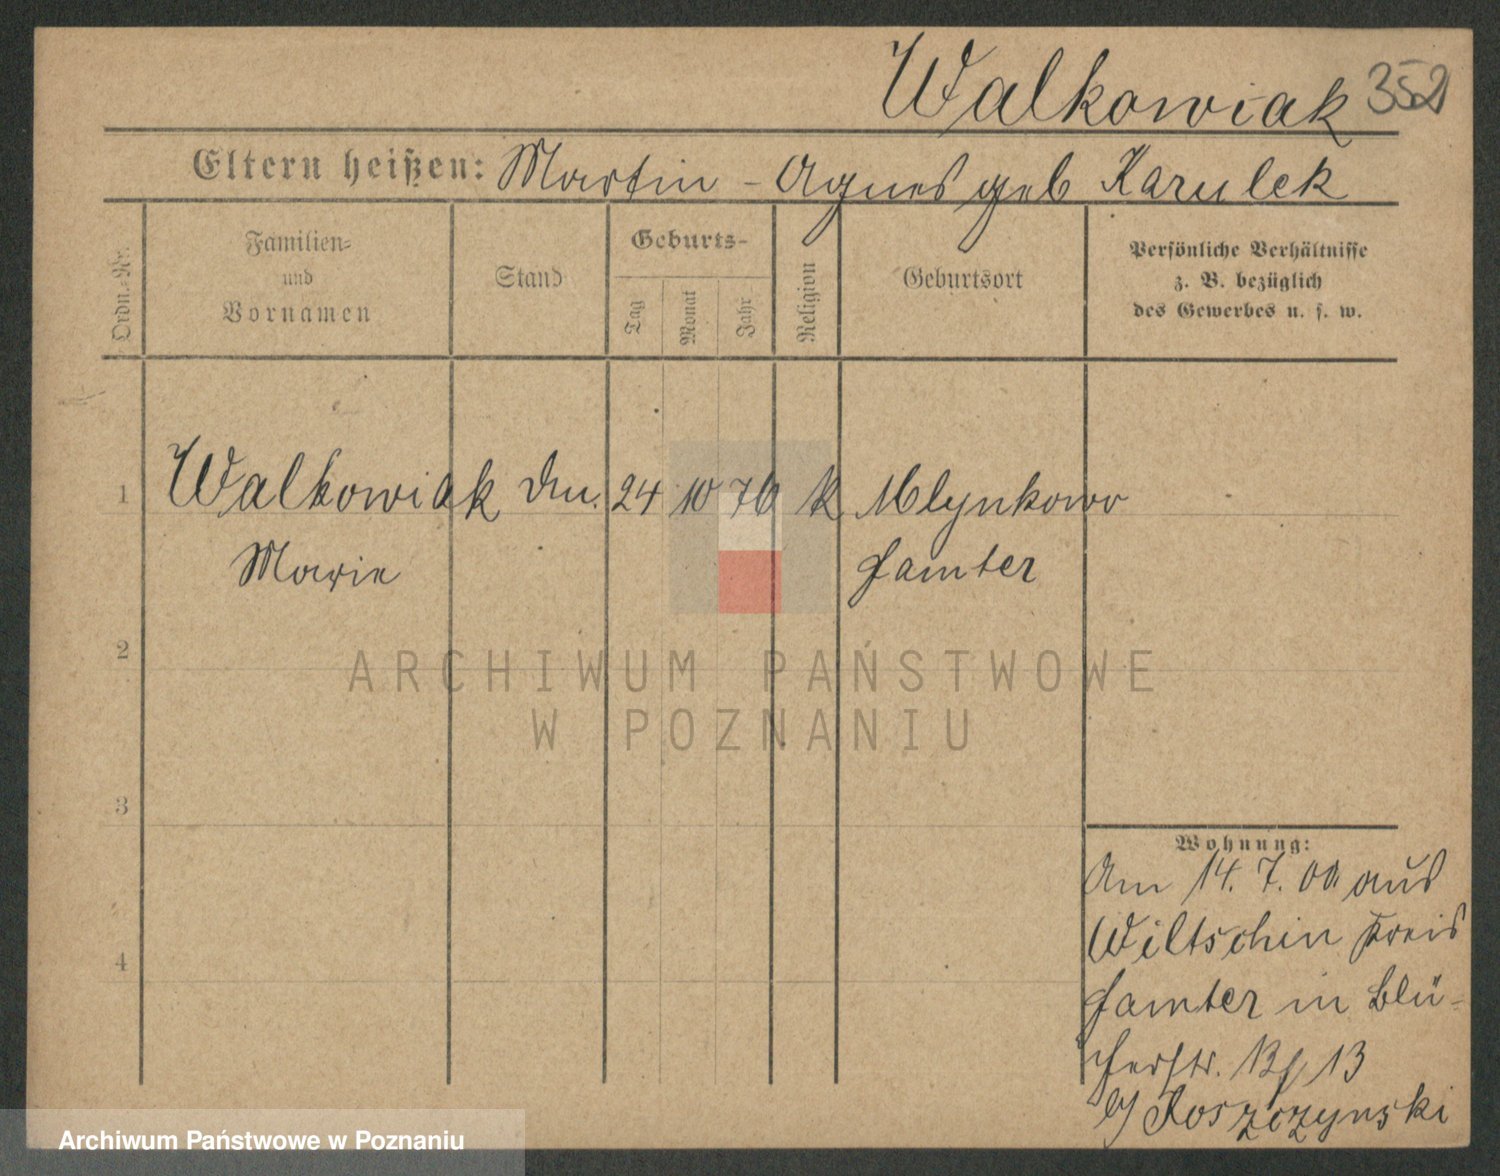 Walkowiak 352
Eltern heißen: Martin - Agnes geb Karulek
Ordn.-Nr.
Familien-
und
Vornamen
Stand
Geburts-
Tag
Monat
Jahr
Religion
Geburtsort
Persönliche Verhältnisse
z. B. bezüglich
des Gewerbes u. s. w.
1 Walkowiak 24 10 76 k Mlynkowo
Marie Samter
2
3
4
ARCHIWUM PAŃSTWOWE
W POZNANIU
Wohnung:
Am 14. 7. 00 aus
Wiltschin Kreis
Samter in Blü-
cherstr. 13
b/ Koszczynski
Archiwum Państwowe w Poznaniu